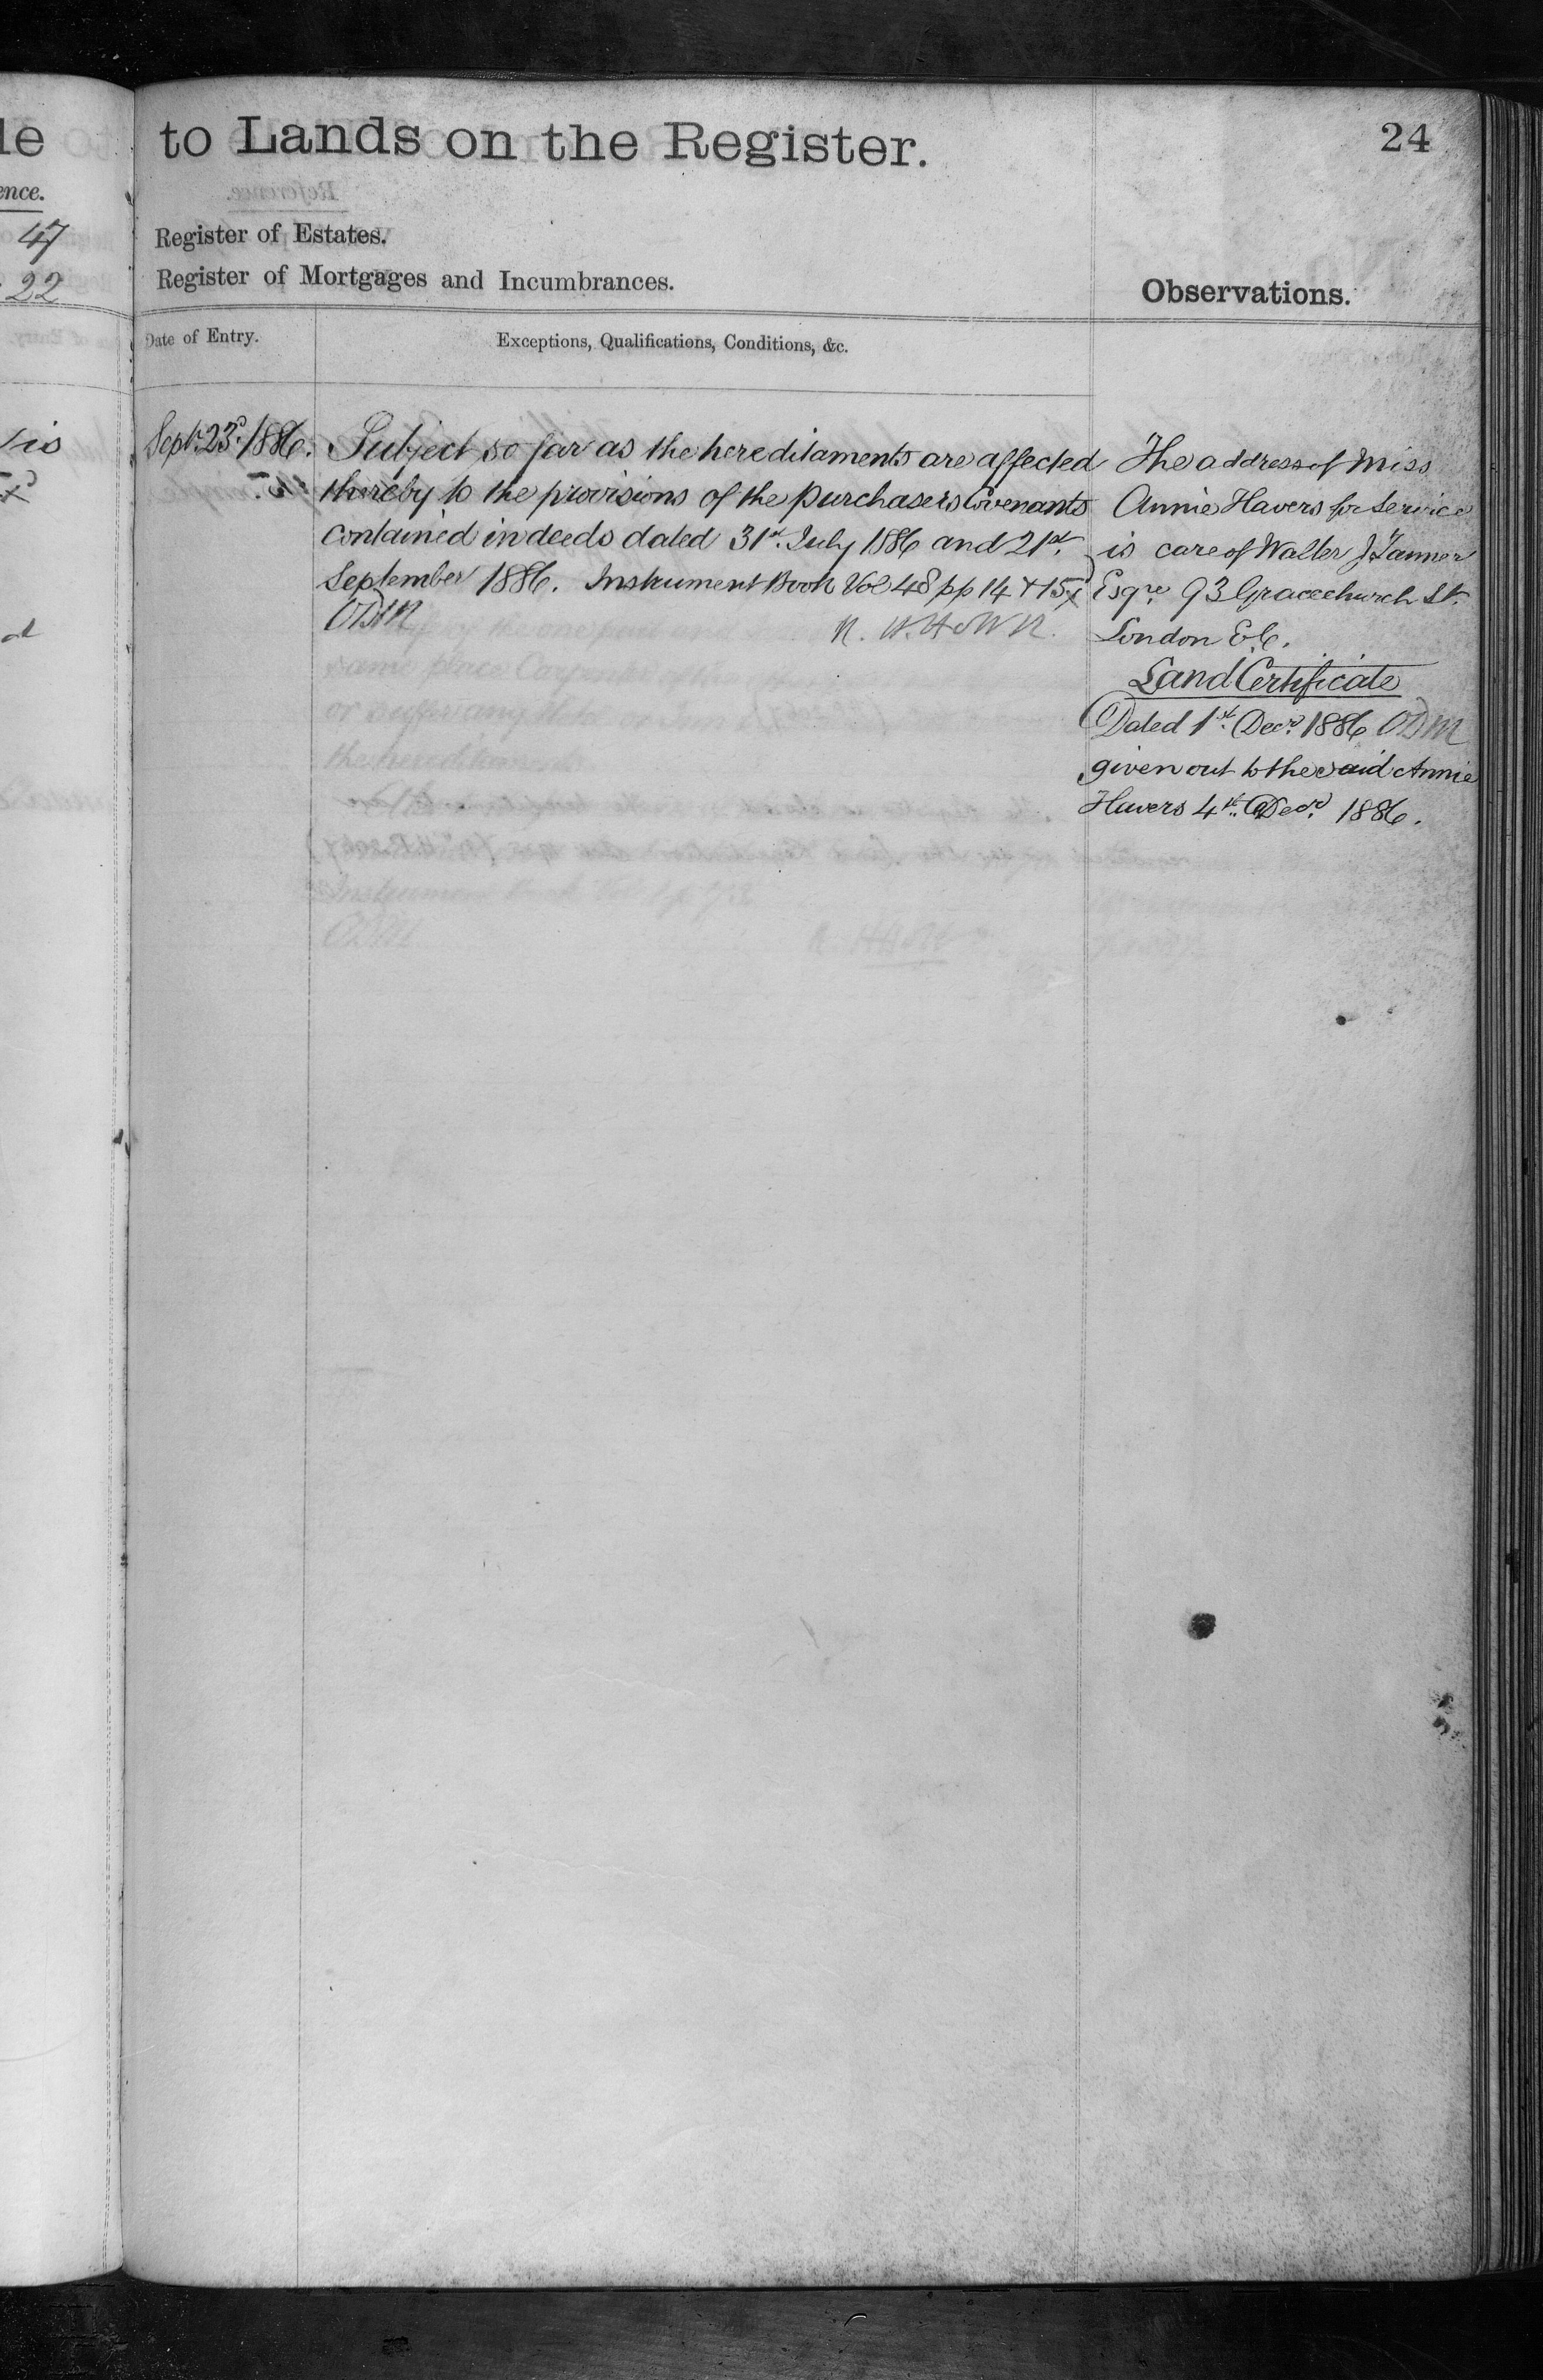 le
ence.
47
22
is
to Lands on the Register.
24
Register of Estates.
Register of Mortgages and Incumbrances.
Observations.
Date of Entry.
Exceptions, Qualifications, Conditions, &c.
Sept. 23d. 1886.
Subject so far as the hereditaments are affected
thereby to the provisions of the purchasers Covenants
contained in deeds dated 31st. July 1886 and 21st.
September 1886. Instrument Book Vol 48 pp 14 + 15
ODM
The address of Miss
Annie Havers for Service
is care of Walter J Tanner
Esqre. 93 Gracechurch St.
London E.C.
Land Certificate
Dated 1st. Decr. 1886 ODM
given out to the said Annie
Havers 4th. Decr. 1886.